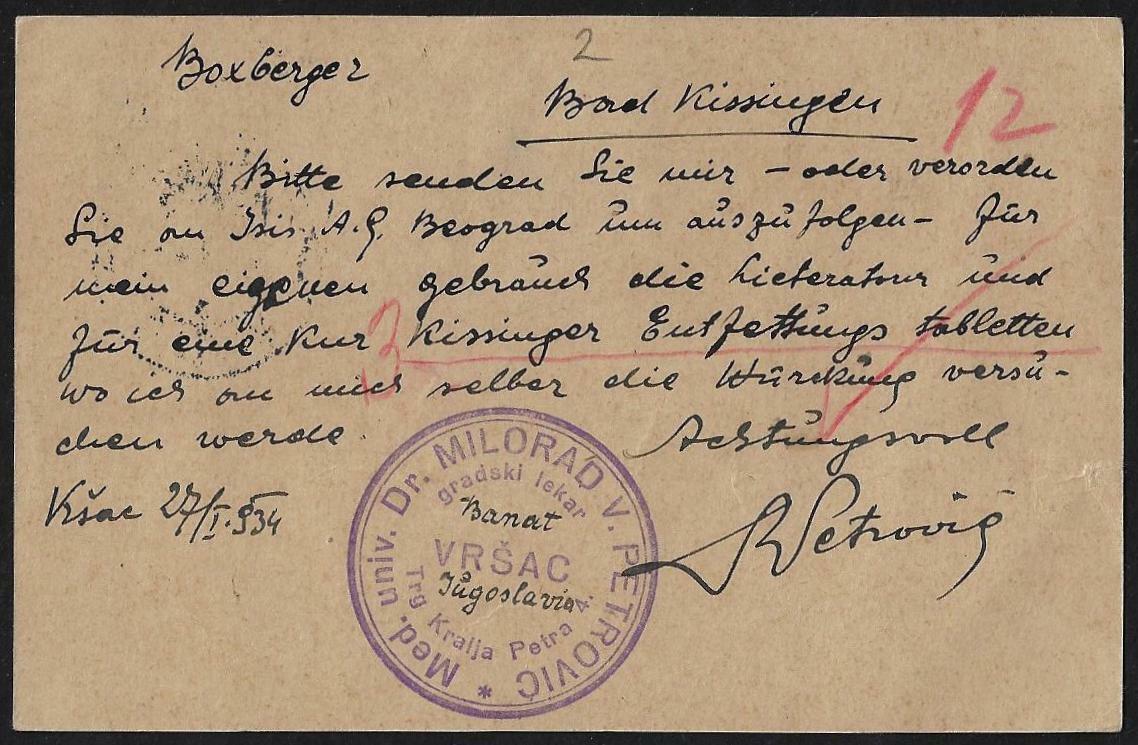 2
Boxberger
Bad Kissingen
12
Bitte senden Sie mir – oder verorden
Sie an Isis A.G. Beograd um auszufolgen – für
mein eigenen gebrauch die Lieteratour und
für eine Kur Kissinger Entfettungs tabletten
wo ich an mich selber die Würckung versu-
chen werde.
Achtungsvoll
Vršac 27/I. 934
Petrović
Med. univ. Dr. MILORAD V. PETROVIĆ *
gradski lekar
Banat
VRŠAC
Jugoslavia
Trg Kralja Petra 4.